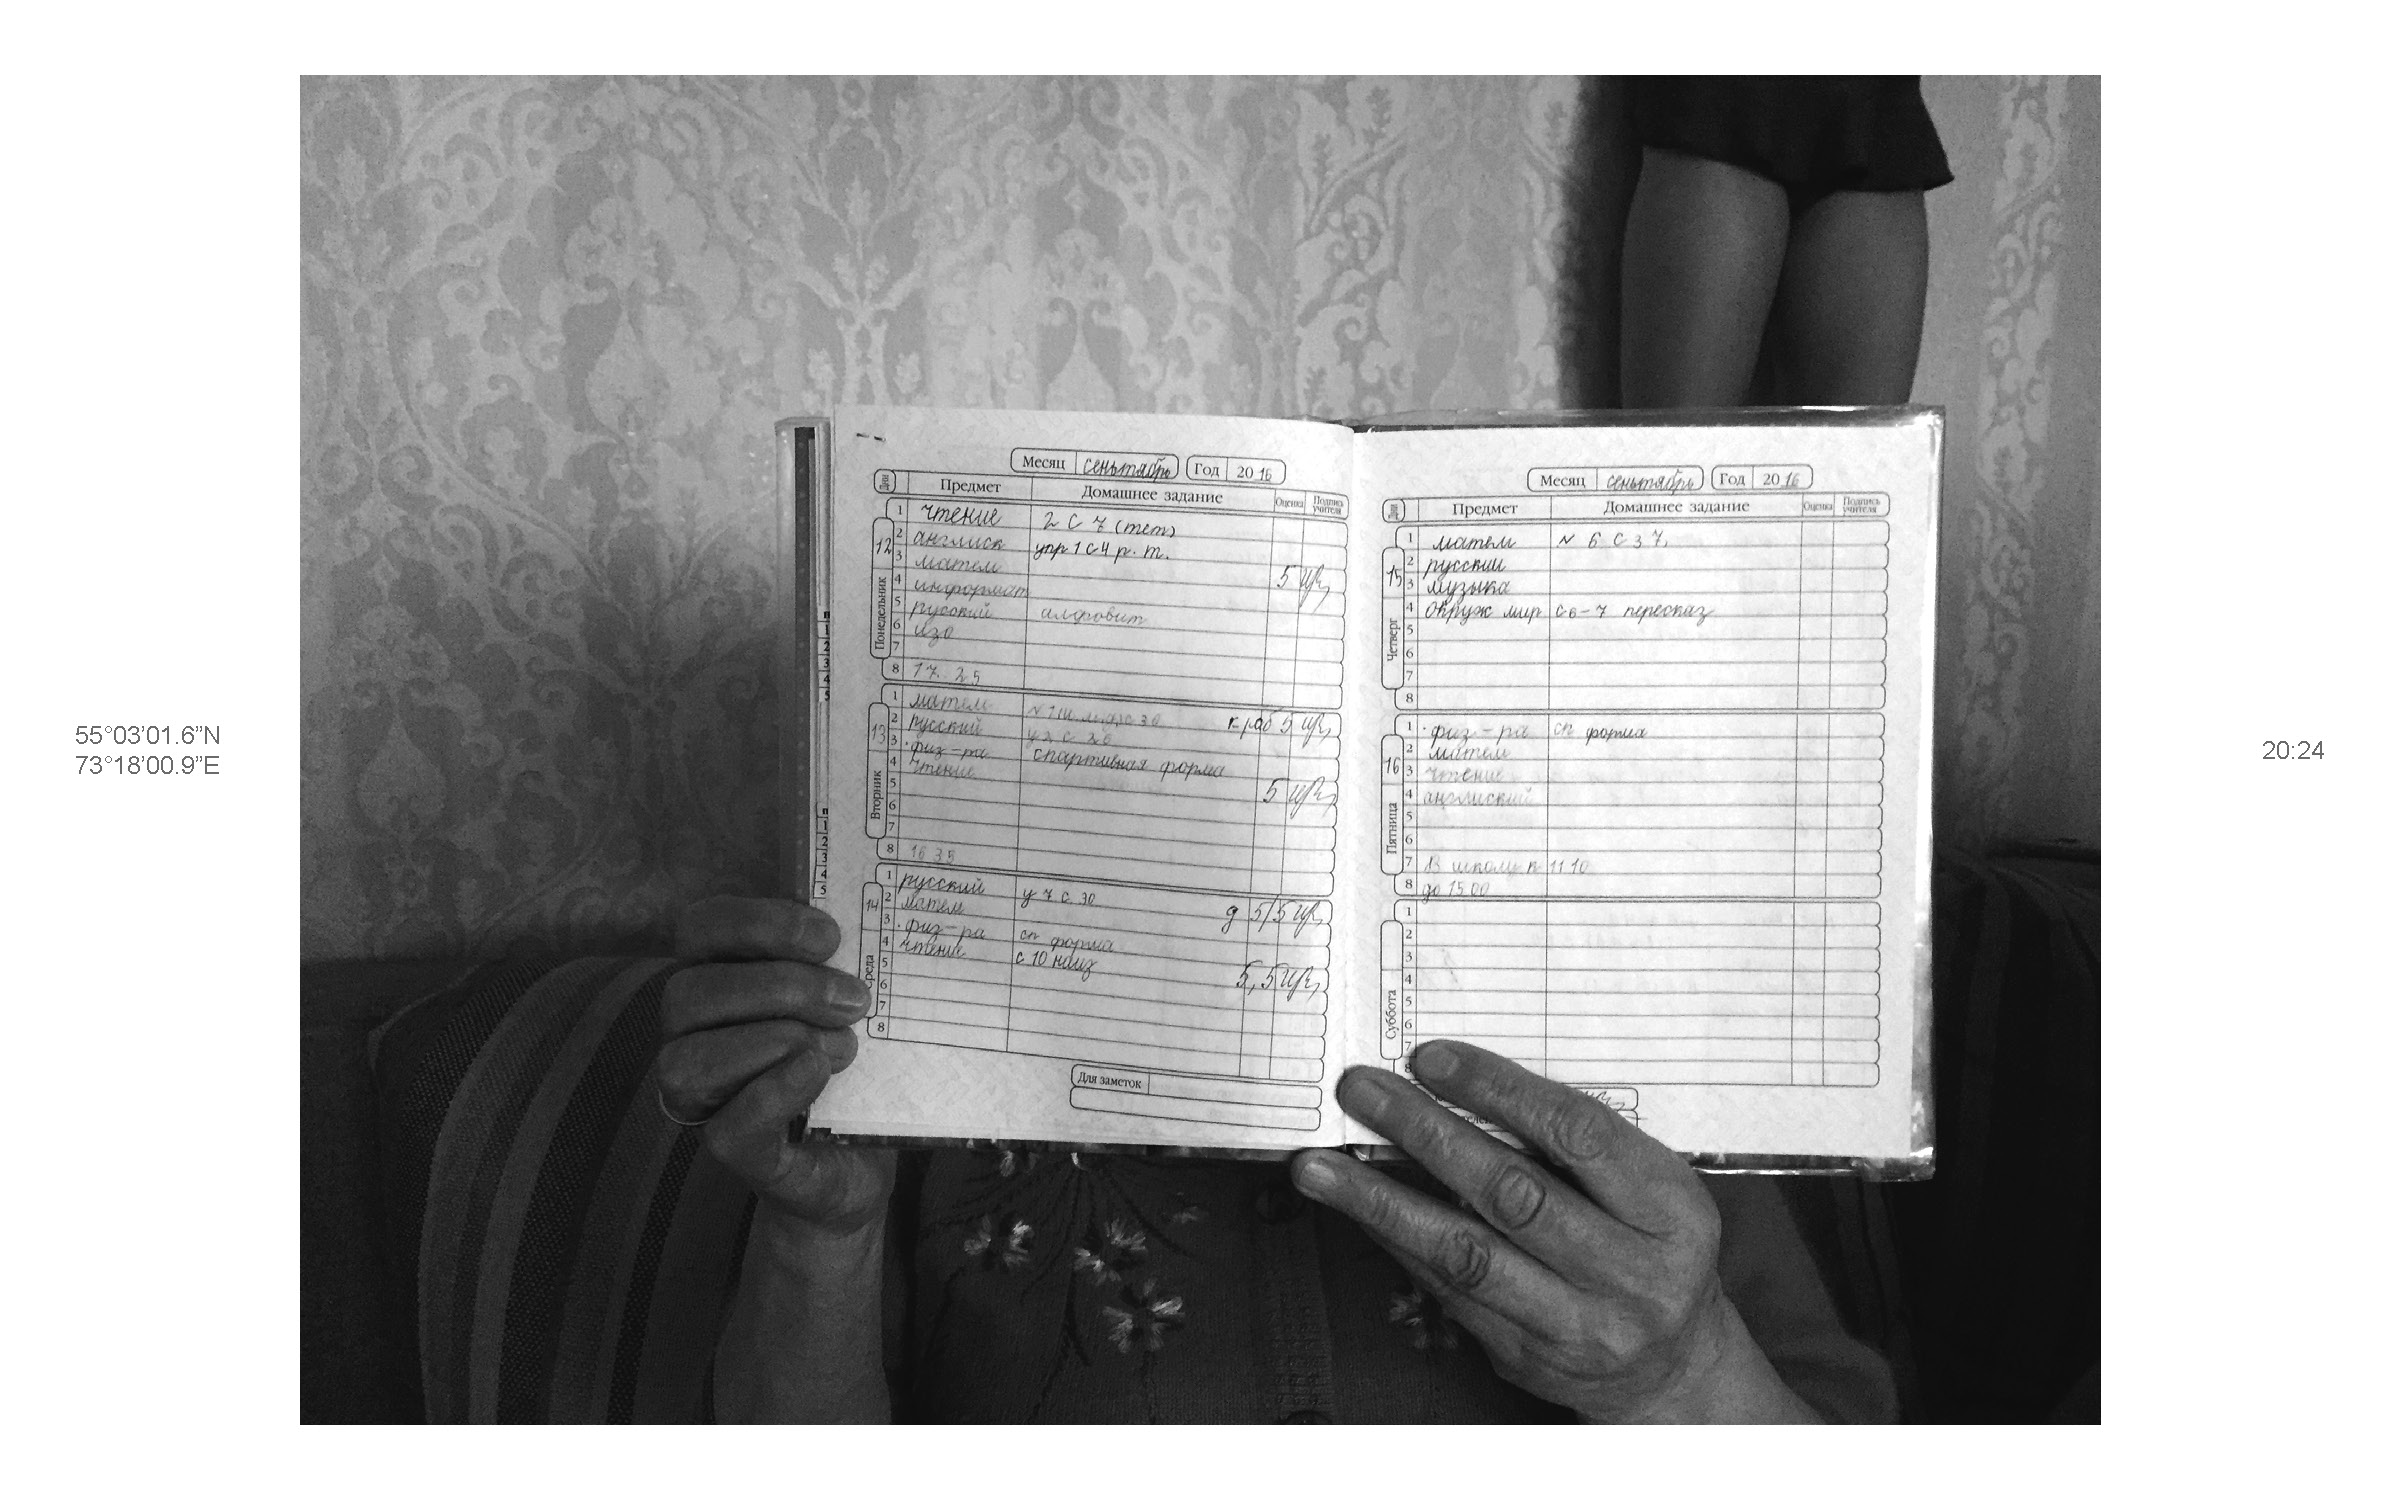 55°03'01.6"N
73°18'00.9"E
20:24
Месяц сеньтябрь Год 20 16
Дни Предмет Домашнее задание Оценка Подпись учителя
12 Понедельник
1 чтение 2 с 7 (тет)
2 англиск упр 1 с 4 р. т.
3 матем 5
4 информат
5 русский алфовит
6 изо
7
8 17. 25
13 Вторник
1 матем к раб 5
2 русский у 2 с 26
3 физ-ра спартивная форма
4 чтение 5
5
6
7
8 16 35
14 Среда
1 русский у 7 с 30
2 матем д 5/5
3 физ-ра сп форма
4 чтение с 10 наиз 5,5
5
6
7
8
Для заметок
Месяц сеньтябрь Год 20 16
Дни Предмет Домашнее задание Оценка Подпись учителя
15 Четверг
1 матем N 6 с 37,
2 русский
3 музыка
4 окруж мир с 6-7 пересказ
5
6
7
8
16 Пятница
1 физ-ра сп форма
2 матем
3 чтение
4 английский
5
6
7 В школу к 11 10
8 до 15 00
Суббота
1
2
3
4
5
6
7
8